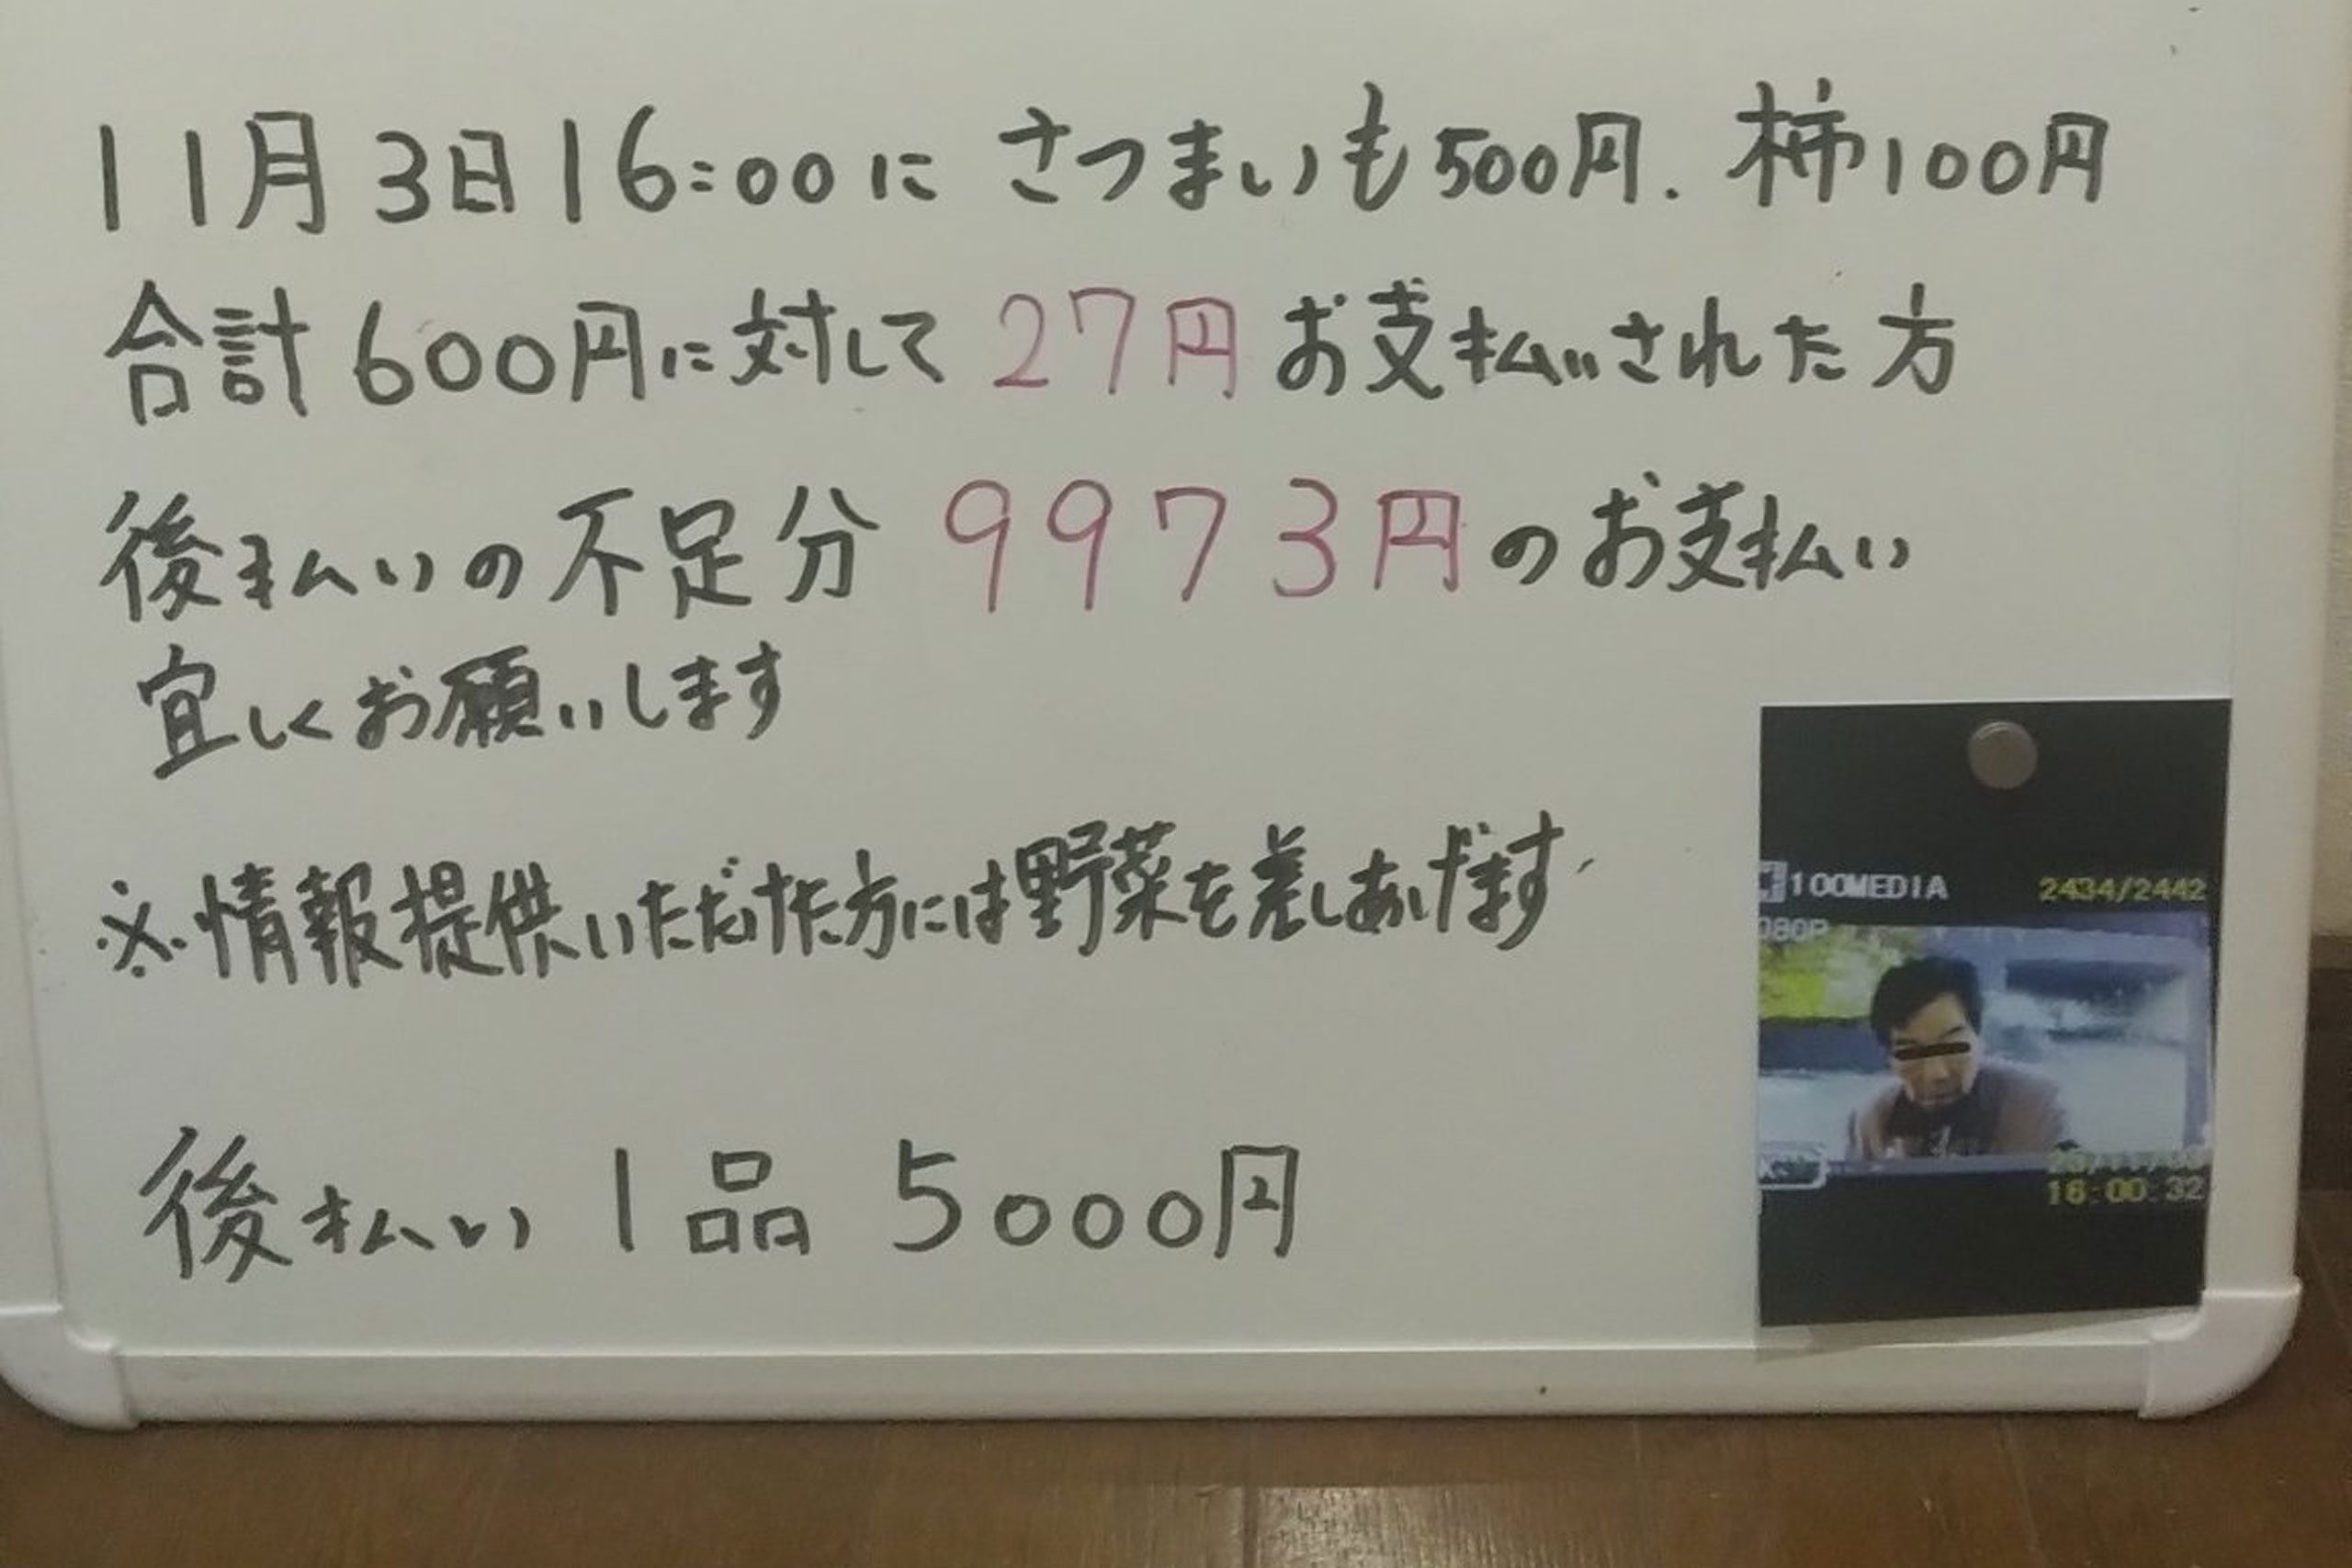 11月3日16:00に さつまいも500円. 柿100円
合計600円に対して 27円お支払いされた方
後払いの不足分 9973円のお支払い
宜しくお願いします
※情報提供いただけた方には野菜を差しあげます
後払い 1品 5000円
100MEDIA 2434/2442
080P
16:00:32